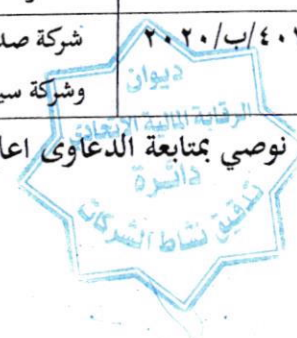 شركة صد
٤٠٢/ب/٢٠٢٠
وشركة سي
نوصي بمتابعة الدعاوى اعا
ديوان
الرقابة المالية الاتحادي
دائرة
تدقيق نشاط الشركات